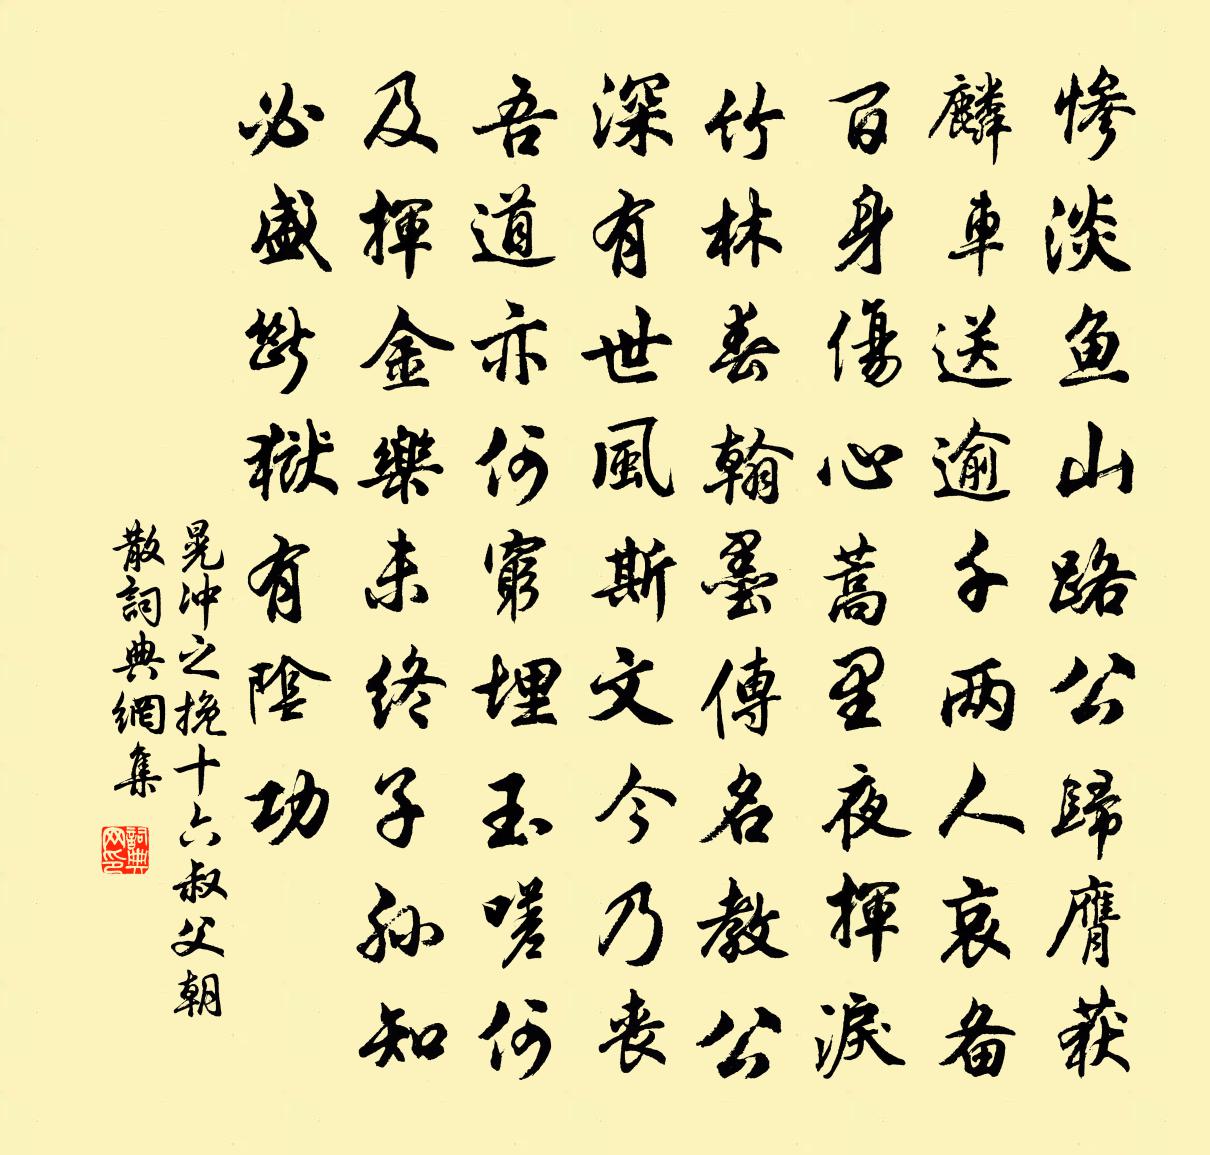 慘淡魚山路公歸膺获
麟車送逾千两人哀备
百身傷心蒿里夜揮淚
竹林春翰墨傳名教公
深有世風斯文今乃丧
吾道亦何窮埋玉嗟何
及揮金樂未终子孙知
必盛斷獄有陰功
晃沖之挽十六叔父朝
散詞典網集
詞典网印